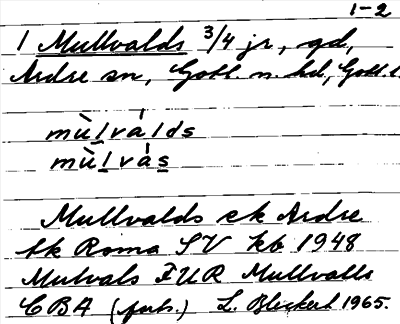 1-2
1 Mullvalds 3/4 jr, gd,
Ardre sn, Gotl. n. hd, Gotl. l.
mù̀lválds
mùlvás
Mullvalds ek Ardre
tk Roma SV kb 1948
Mulvals JUR Mullvalls
CBA (fört.) L. Blickert 1965.